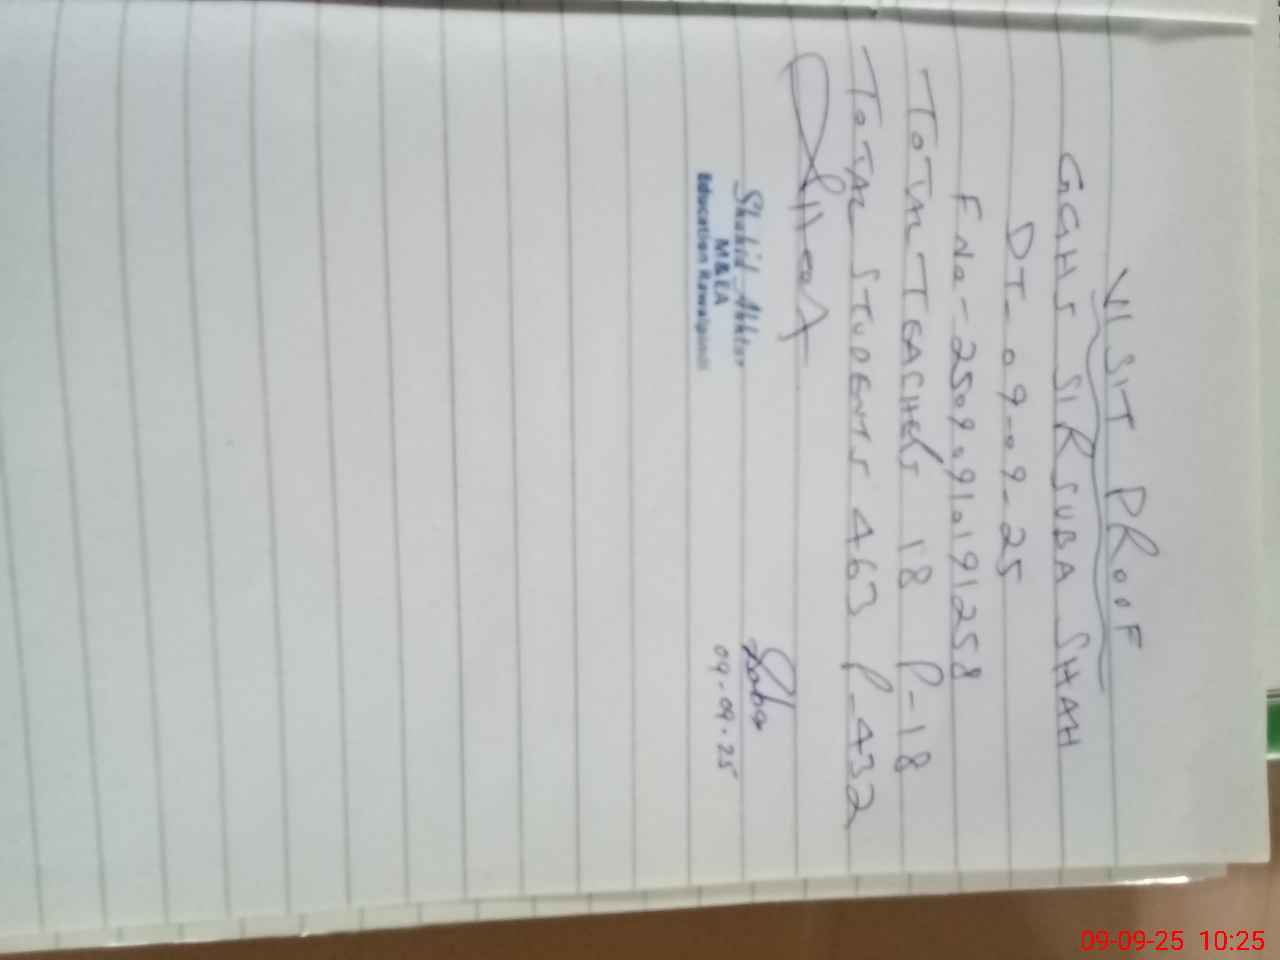 VISIT PROOF
GGHS SIR SUBA SHAH
DT. 09-09-25
F No - 25090910191258
TOTAL TEACHERS 18 P-18
TOTAL STUDENTS 463 P-432
Shahid Akhtar
M&EA
Education Rawalpindi
Saba
09-09-25
09-09-25 10:25